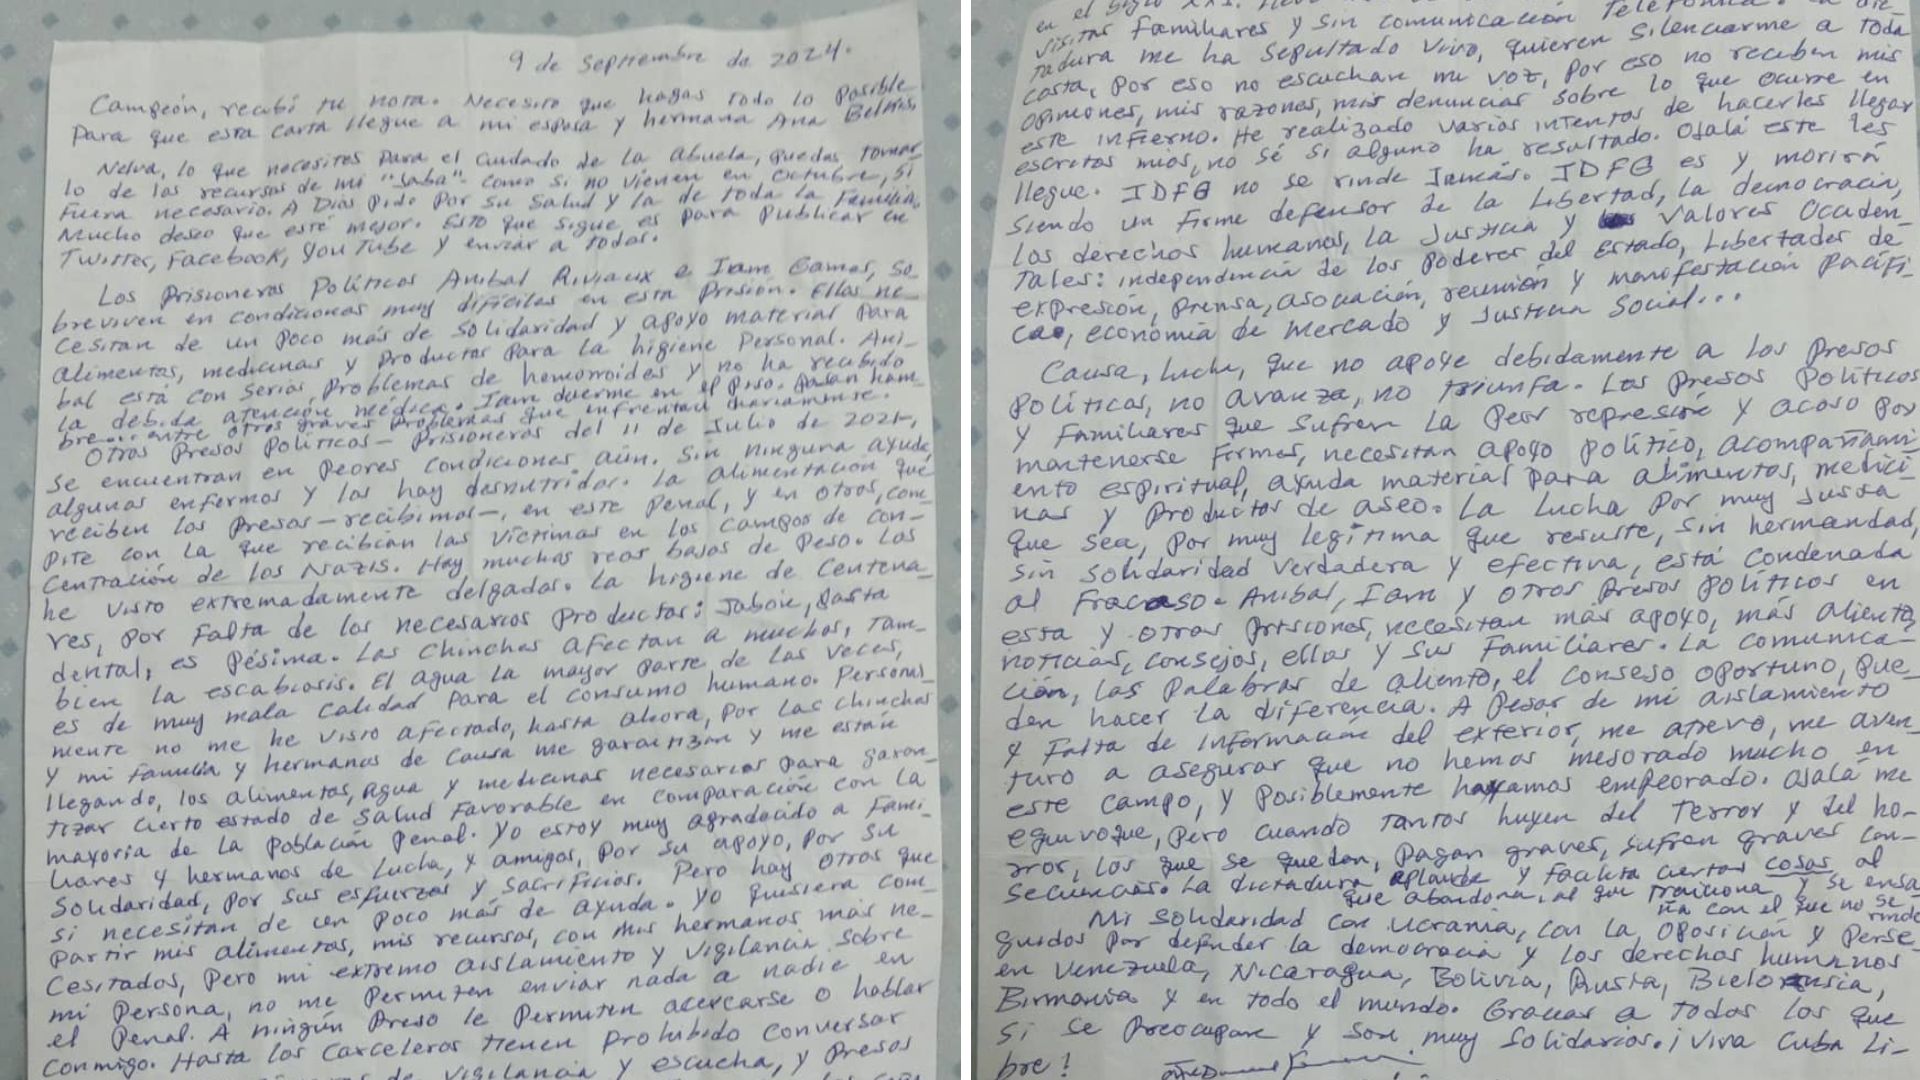 9 de Septiembre de 2024.
Campeón, recibí tu nota. Necesito que hagas todo lo posible
para que esta carta llegue a mi esposa y hermana Ana Belkis,
Nelva, lo que necesites para el cuidado de la abuela, puedes tomar
lo de los recursos de mi "Jaba". Como si no vienen en octubre, si
fuera necesario. A Dios pido por su salud y la de toda la familia,
Mucho deseo que esté mejor. Esto que sigue es para publicar en
Twitter, Facebook, YouTube y enviar a todos.
Los Prisioneros Políticos Aníbal Riviaux e Iam Gamez, so_
breviven en condiciones muy difíciles en esta Prisión. Ellos ne_
cesitan de un poco más de solidaridad y apoyo material para
alimentos, medicinas y productos para la higiene Personal. Aní_
bal está con serios problemas de hemorroides y no ha recibido
la debida atención médica. Iam duerme en el piso. Pasan ham_
bre... entre otros graves problemas que enfrentan diariamente.
Otros Presos Políticos - Prisioneros del 11 de Julio de 2021-,
se encuentran en peores condiciones aún. Sin ninguna ayuda,
algunos enfermos y los hay desnutridos. La alimentación que
reciben los Presos - recibimos -, en este Penal, y en otros, com_
pite con la que recibían las víctimas en los campos de con_
centración de los Nazis. Hay muchos reos bajos de peso. Los
he visto extremadamente delgados. La higiene de centena_
res, por falta de los necesarios productos: jabón, pasta
dental, es pésima. Las chinches afectan a muchos, tam_
bién la escabiosis. El agua la mayor parte de las veces,
es de muy mala calidad para el consumo humano. Personal_
mente no me he visto afectado, hasta ahora, por las chinches
y mi familia y hermanos de causa me garantizan y me están
llegando, los alimentos, agua y medicinas necesarias para garan_
tizar cierto estado de salud favorable en comparación con la
mayoría de la población penal. Yo estoy muy agradecido a fami_
liares y hermanos de lucha, y amigos, por su apoyo, por su
solidaridad, por sus esfuerzos y sacrificios. Pero hay otros que
si necesitan de un poco más de ayuda. Yo quisiera com_
partir mis alimentos, mis recursos, con mis hermanos más ne_
cesitados, pero mi extremo aislamiento y vigilancia sobre
mi persona, no me permiten enviar nada a nadie en
el Penal. A ningún preso le permiten acercarse o hablar
conmigo. Hasta los carceleros tienen prohibido conversar
de vigilancia y escucha, y presos
en el Siglo XXI.
visitas familiares y sin comunicación Telefónica. La dic_
tadura me ha sepultado vivo, quieren silenciarme a toda
costa, por eso no escuchan mi voz, por eso no reciben mis
opiniones, mis razones, mis denuncias sobre lo que ocurre en
este infierno. He realizado varios intentos de hacerles llegar
escritos míos, no sé si alguno ha resultado. Ojalá este les
llegue. JDFG no se rinde Jamás. JDFG es y morirá
siendo un firme defensor de la Libertad, la democracia,
los derechos humanos, la Justicia y Valores Occiden_
tales: independencia de los poderes del Estado, Libertades de
expresión, prensa, asociación, reunión y manifestación pacífi_
cas, economía de Mercado y Justicia Social...
Causa, lucha, que no apoye debidamente a los Presos
Políticos, no avanza, no triunfa. Los Presos Políticos
y familiares que sufren la peor represión y acoso por
mantenerse firmes, necesitan apoyo político, acompañami_
ento espiritual, ayuda material para alimentos, medici_
nas y productos de aseo. La lucha por muy justa
que sea, por muy legítima que resulte, sin hermandad,
sin solidaridad verdadera y efectiva, está condenada
al fracaso. Aníbal, Iam y otros presos políticos en
esta y otras prisiones, necesitan más apoyo, más aliento,
noticias, consejos, ellos y sus familiares. La comunica_
ción, las palabras de aliento, el consejo oportuno, pue_
den hacer la diferencia. A pesar de mi aislamiento
y falta de información del exterior, me atrevo, me aven_
turo a asegurar que no hemos mejorado mucho en
este campo, y posiblemente hayamos empeorado. Ojalá me
equivoque, pero cuando tantos huyen del terror y del ho_
rror, los que se quedan, pagan graves, sufren graves con_
secuencias. La dictadura aplaude y facilita ciertas cosas al
que abandona, al que traiciona y se ensa_
ña con el que no se
rinde
Mi solidaridad con Ucrania, con la oposición y perse_
guidos por defender la democracia y los derechos humanos
en Venezuela, Nicaragua, Bolivia, Rusia, Bielorrusia,
Birmania y en todo el mundo. Gracias a todos los que
si se preocupan y son muy solidarios. ¡Viva Cuba Li_
bre!